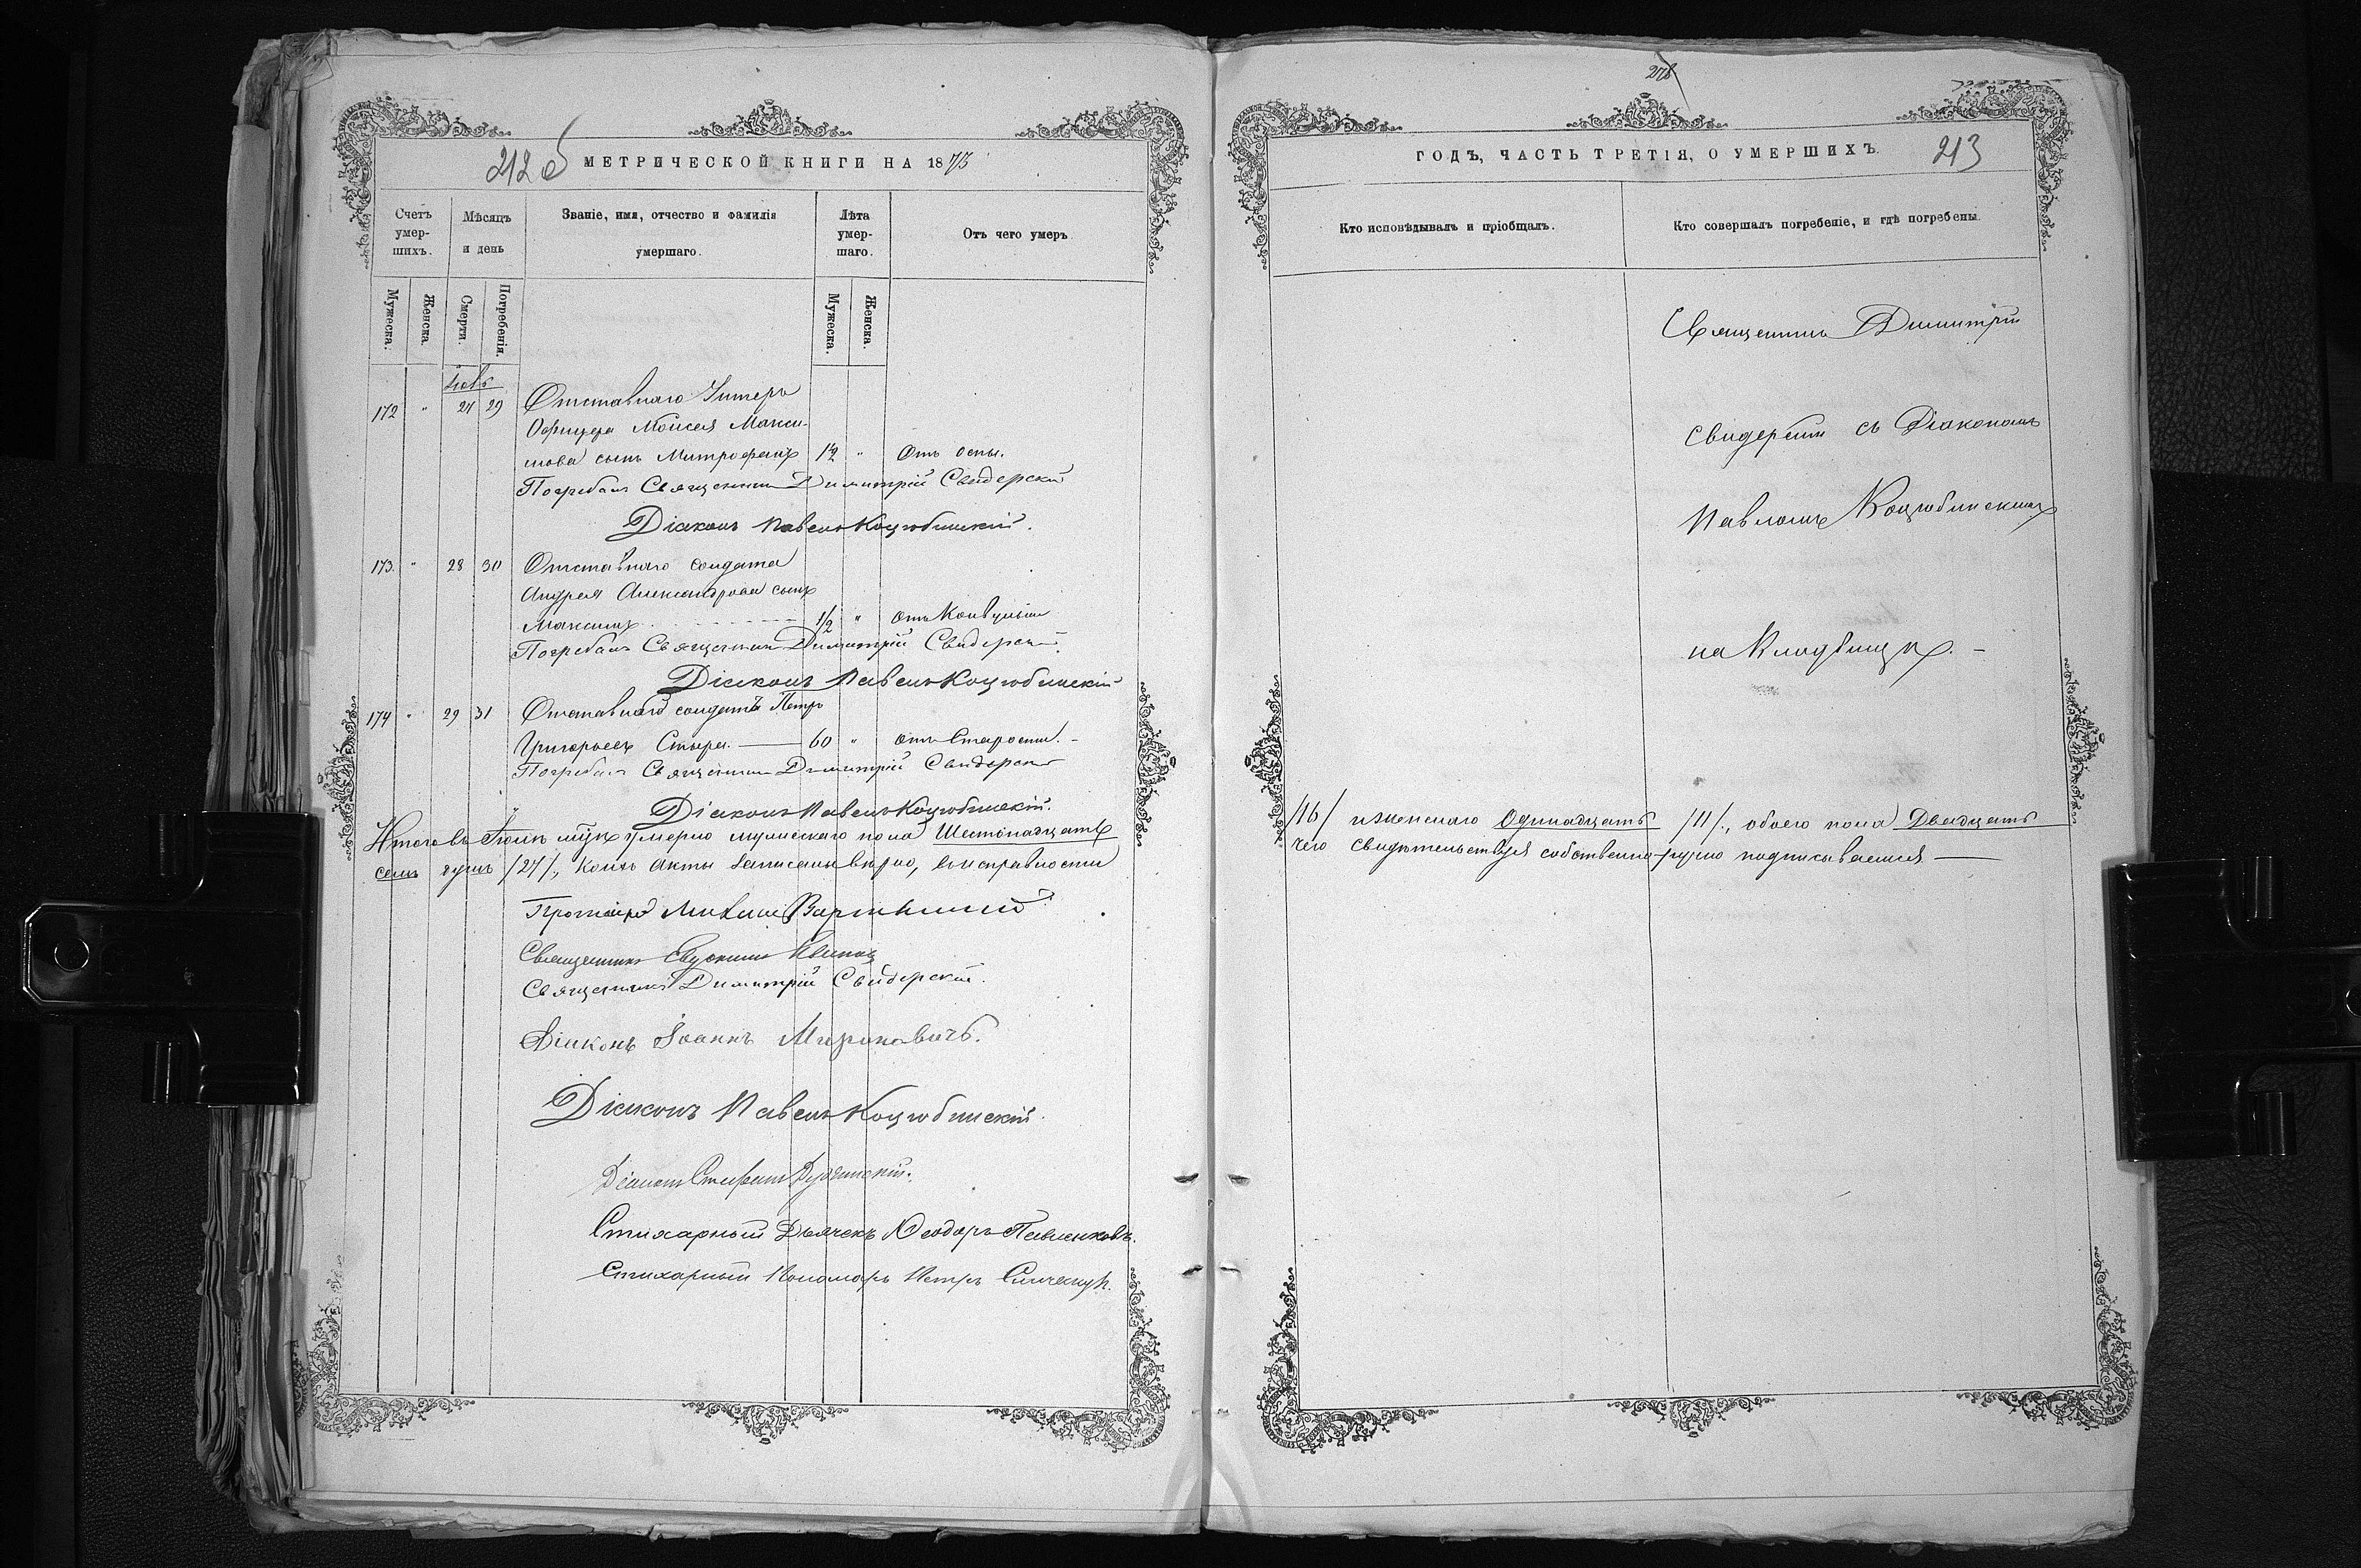 212 об
МЕТРИЧЕСКОЙ КНИГИ НА 1873
Счетъ умер-шихъ.
Мѣсяцъ и день
Званіе, имя, отчество и фамилія умершаго.
Лѣта умер-шаго.
Отъ чего умеръ
Мужеска.
Женска.
Смерти.
Погребенія.
Мужеска.
Женска.
172 " 27 29 Отставнаго Унтеръ
Офицера Моисея Макси-
мова сынъ Митрофанъ 1½ " Отъ оспы.
Погребалъ Священникъ Димитрій Свидерскій
Діаконъ Павелъ Коцюбинскій.
173. " 28 30 Отставнаго солдата
Андрея Александрова сынъ
Максимъ 1/2 " Отъ Конвульсіи
Погребалъ Священникъ Димитрій Свидерскій.
Діаконъ Павелъ Коцюбинскій
174 " 29 31 Отставной солдатъ Петръ
Григорьевъ 60 " Отъ Старости. -
Погребалъ Священникъ Димитрій Свидерскій
Діаконъ Павелъ Коцюбинскій.
Итого въ Іюлѣ м-цѣ умерло мужескаго пола Шестнадцать
семь душъ /27/, коихъ акты записаны вѣрно, въ исправности
Протоіерей
Священникъ Евдокимъ
Священникъ Димитрій Свидерскій.
Діаконъ Іоаннъ Мироновичъ.
Діаконъ Павелъ Коцюбинскій.
Діаконъ Стефанъ
Стихарный Дьячекъ Ѳеодоръ Павленковъ.
Стихарный Пономарь Петръ
278
ГОДЪ, ЧАСТЬ ТРЕТІЯ, О УМЕРШИХЪ.
213
Кто исповѣдывалъ и пріобщалъ.
Кто совершалъ погребеніе, и гдѣ погребены.
Священникъ Димитрій
Свидерскій съ Діакономъ
Павломъ Коцюбинскимъ
на Кладбищѣ. -
/16/ и женскаго Одинадцать /11/, обоего пола Двадцать
чего свидѣтельствуя собственно-ручно подписываемся —